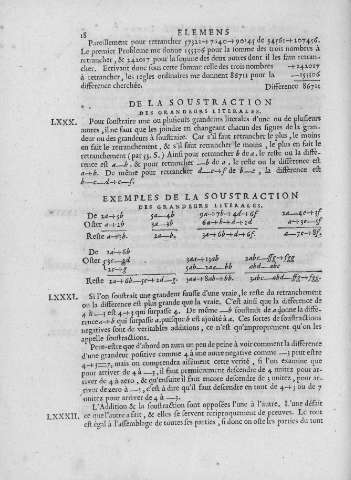 18 ELEMENS
Pareillement pour retrancher 57322+7140+90145 de 34561+207456.
Le premier Probleme me donne 155306 pour la somme des trois nombres à
retrancher, & 242017 pour la somme des deux autres dont il les faut retran-
cher. Ecrivant donc sous cette somme celle des trois nombres +242017
à retrancher, les regles ordinaires me donnent 86711 pour la —155306
difference cherchée. Difference 86711
DE LA SOUSTRACTION
DES GRANDEURS LITERALES.
LXXX. Pour soustraire une ou plusieurs grandeurs literales d'une ou de plusieurs
autres, il ne faut que les joindre en changeant chacun des signes de la gran-
deur ou des grandeurs à soustraire. Car s'il faut retrancher le plus, le moins
en fait le retranchement, & s'il faut retrancher le moins, le plus en fait le
retranchement (par 55. S.) Ainsi pour retrancher b de a. le reste ou la diffé-
rence est a—b. & pour retrancher —b de a, le reste ou la difference est
a+b. De même pour retrancher d—c+f de b—c, la différence est
EXEMPLES DE LA SOUSTRACTION
DES GRANDEURS LITERALES.
De 2a+3b 5a—4b
Oster a+2b 3a—3b
Reste
De 2a+8b
Oster
Reste
LXXXI. Si l'on soustrait une grandeur fausse d'une vraie, le reste du retranchement
ou la difference est plus grande que la vraie. C'est ainsi que la difference de
4 à —3 est 4+3 qui surpasse 4. De même —b soustrait de a donne la diffe-
rence a+b qui surpasse a, puisque b est ajouté à a. Ces sortes de soustractions
negatives sont de veritables additions, ce n'est qu'improprement qu'on les
appelle soustractions.
Peut-estre que d'abord on aura un peu de peine à voir comment la difference
d'une grandeur positive comme 4 à une autre negative comme —3 peut estre
4+3=7, mais on comprendra aisément cette verité, si l'on examine que
pour arriver de 4 à —3, il faut premierement descendre de 4 unitez pour ar-
river de 4 à zero, & qu'ensuite il faut encore descendre de 3 unitez, pour ar-
river de zero à —3, c'est à dire qu'il faut descendre en tout de 4+3 ou de 7
unitez pour arriver de 4 à —3.
L'Addition & la soustraction sont opposées l'une à l'autre. L'une défait
LXXXII. ce que l'autre a fait, & elles se servent reciproquement de preuves. Le tout
est égal à l'assemblage de toutes ses parties, si donc on oste les parties du tout